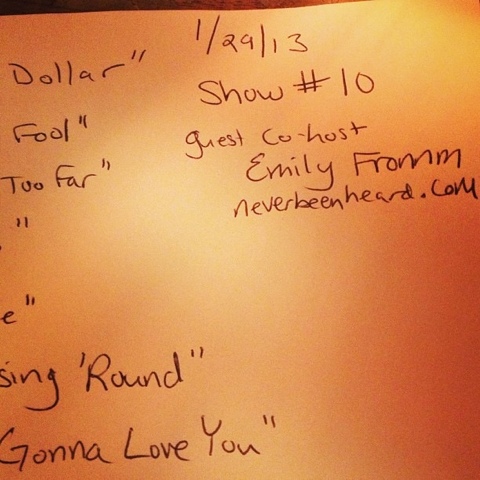 Dollar"
1/29/13
Show # 10
Fool"
guest co-host
Too Far"
Emily Fromm
neverbeenheard.com
"
e"
sing 'Round"
Gonna Love You"